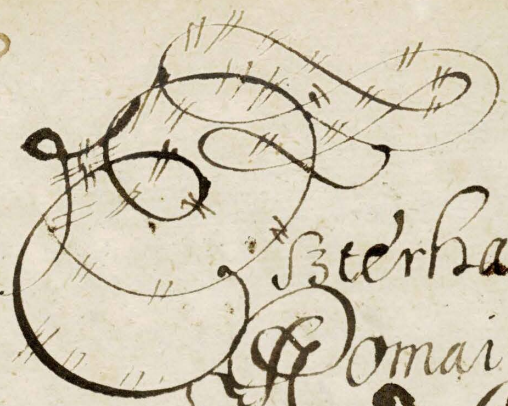 Eszterha
Romai